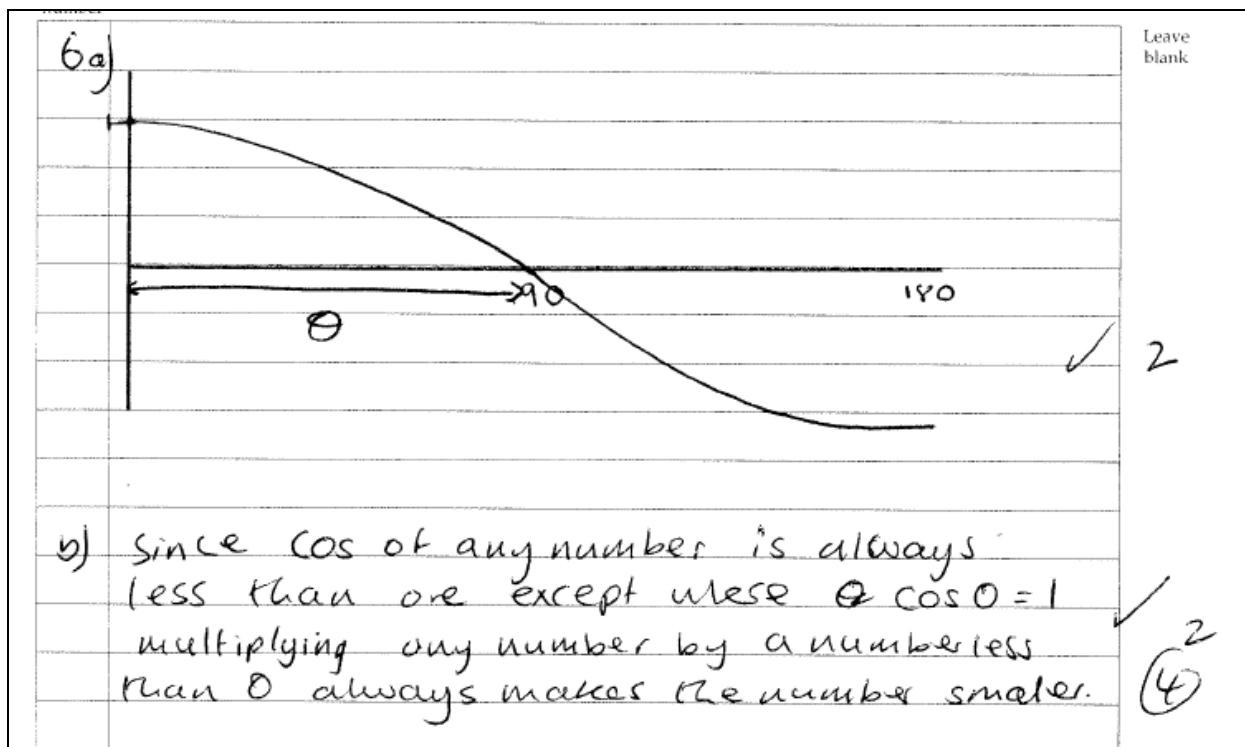 Leave
blank
6a)
90
180
θ
2
b) Since cos of any number is always
less than one except where θ cos 0 = 1
multiplying any number by a number less
than 0 always makes the number smaller.
2
4